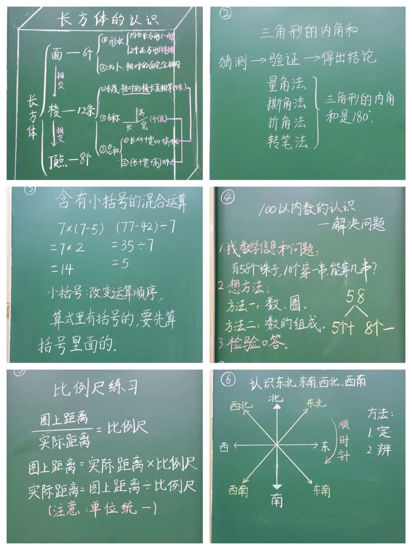 长方体的认识
长方体
面—6个
相交
棱—12条
相交
顶点—8个
①形状
②大小
长
宽
高
②
三角形的内角和
猜测→验证→得出结论
量角法
撕角法
折角法
转笔法
三角形的内角
和是180°
含有小括号的混合运算
7×(7-5) (77-42)÷7
=7×2 =35÷7
=14 =5
小括号:改变运算顺序.
算式里有括号的,要先算
括号里面的.
④
100以内数的认识
—解决问题
1.找数学信息和问题:
有58个珠子,10个穿一串,能穿几串?
2.想方法:
方法一:数、圈.
方法二:数的组成.
58
5个十 8个一
3.检验口答.
⑤
比例尺练习
图上距离
实际距离
=比例尺
图上距离=实际距离×比例尺
实际距离=图上距离÷比例尺
(注意:单位统一)
⑥
认识东北、东南、西北、西南
北
西北 东北
西 东
西南 东南
南
顺时针
方法:
1.定
2.辨